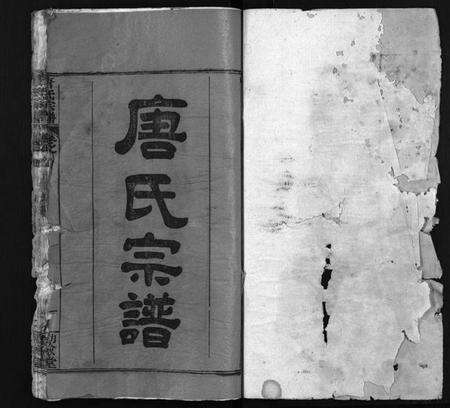 唐氏宗譜